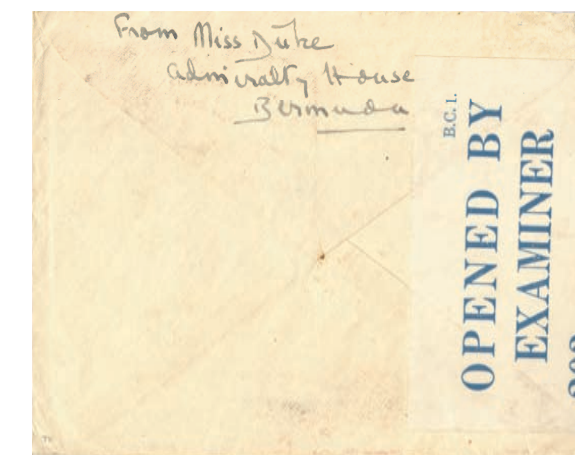 From Miss Duke
Admiralty House
Bermuda
B.C. 1.
OPENED BY
EXAMINER